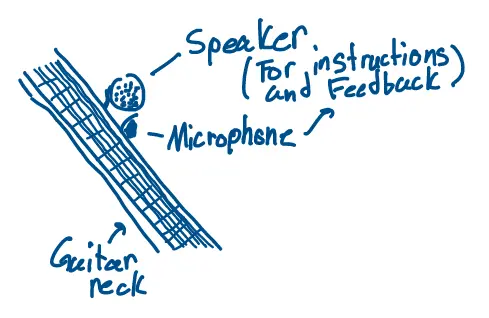 Speaker
(For instructions
and Feedback)
Microphone
Guitar
neck